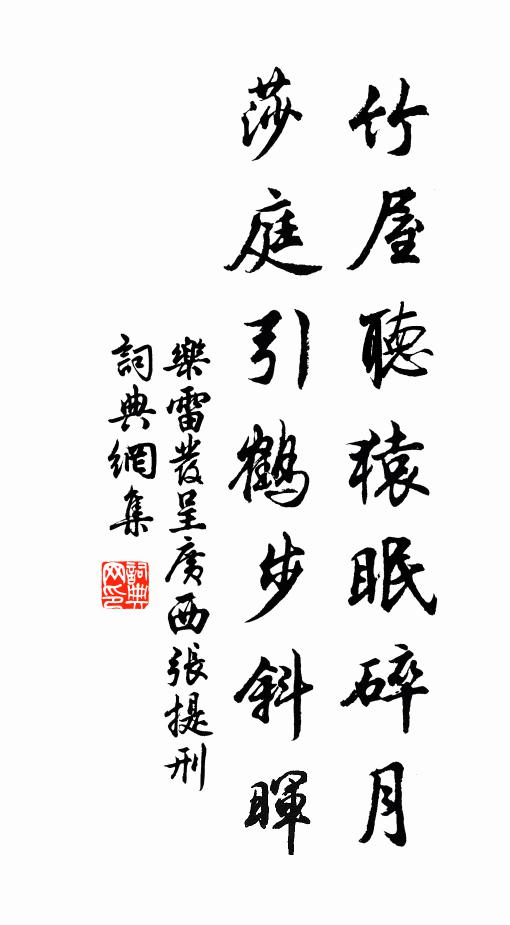 竹屋聽猿眠碎月
莎庭引鶴步斜暉
樂雷發呈廣西張提刑
詞典網集
詞典
网印